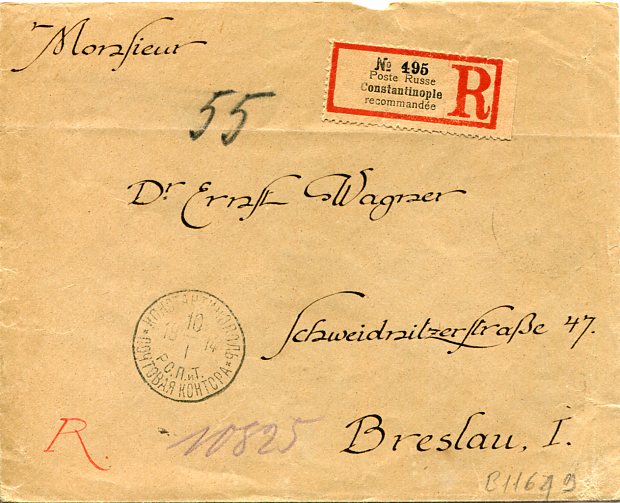 Monsieur
№ 495
Poste Russe
Constantinople
recommandée
R
55
Dr Ernst Wagner
Schweidnitzerstraße 47.
КОНСТАНТИНОПОЛЬ
10
19 14
I
Р.О.П.иТ.
ПОЧТОВАЯ КОНТОРА
R.
10825
Breslau, I.